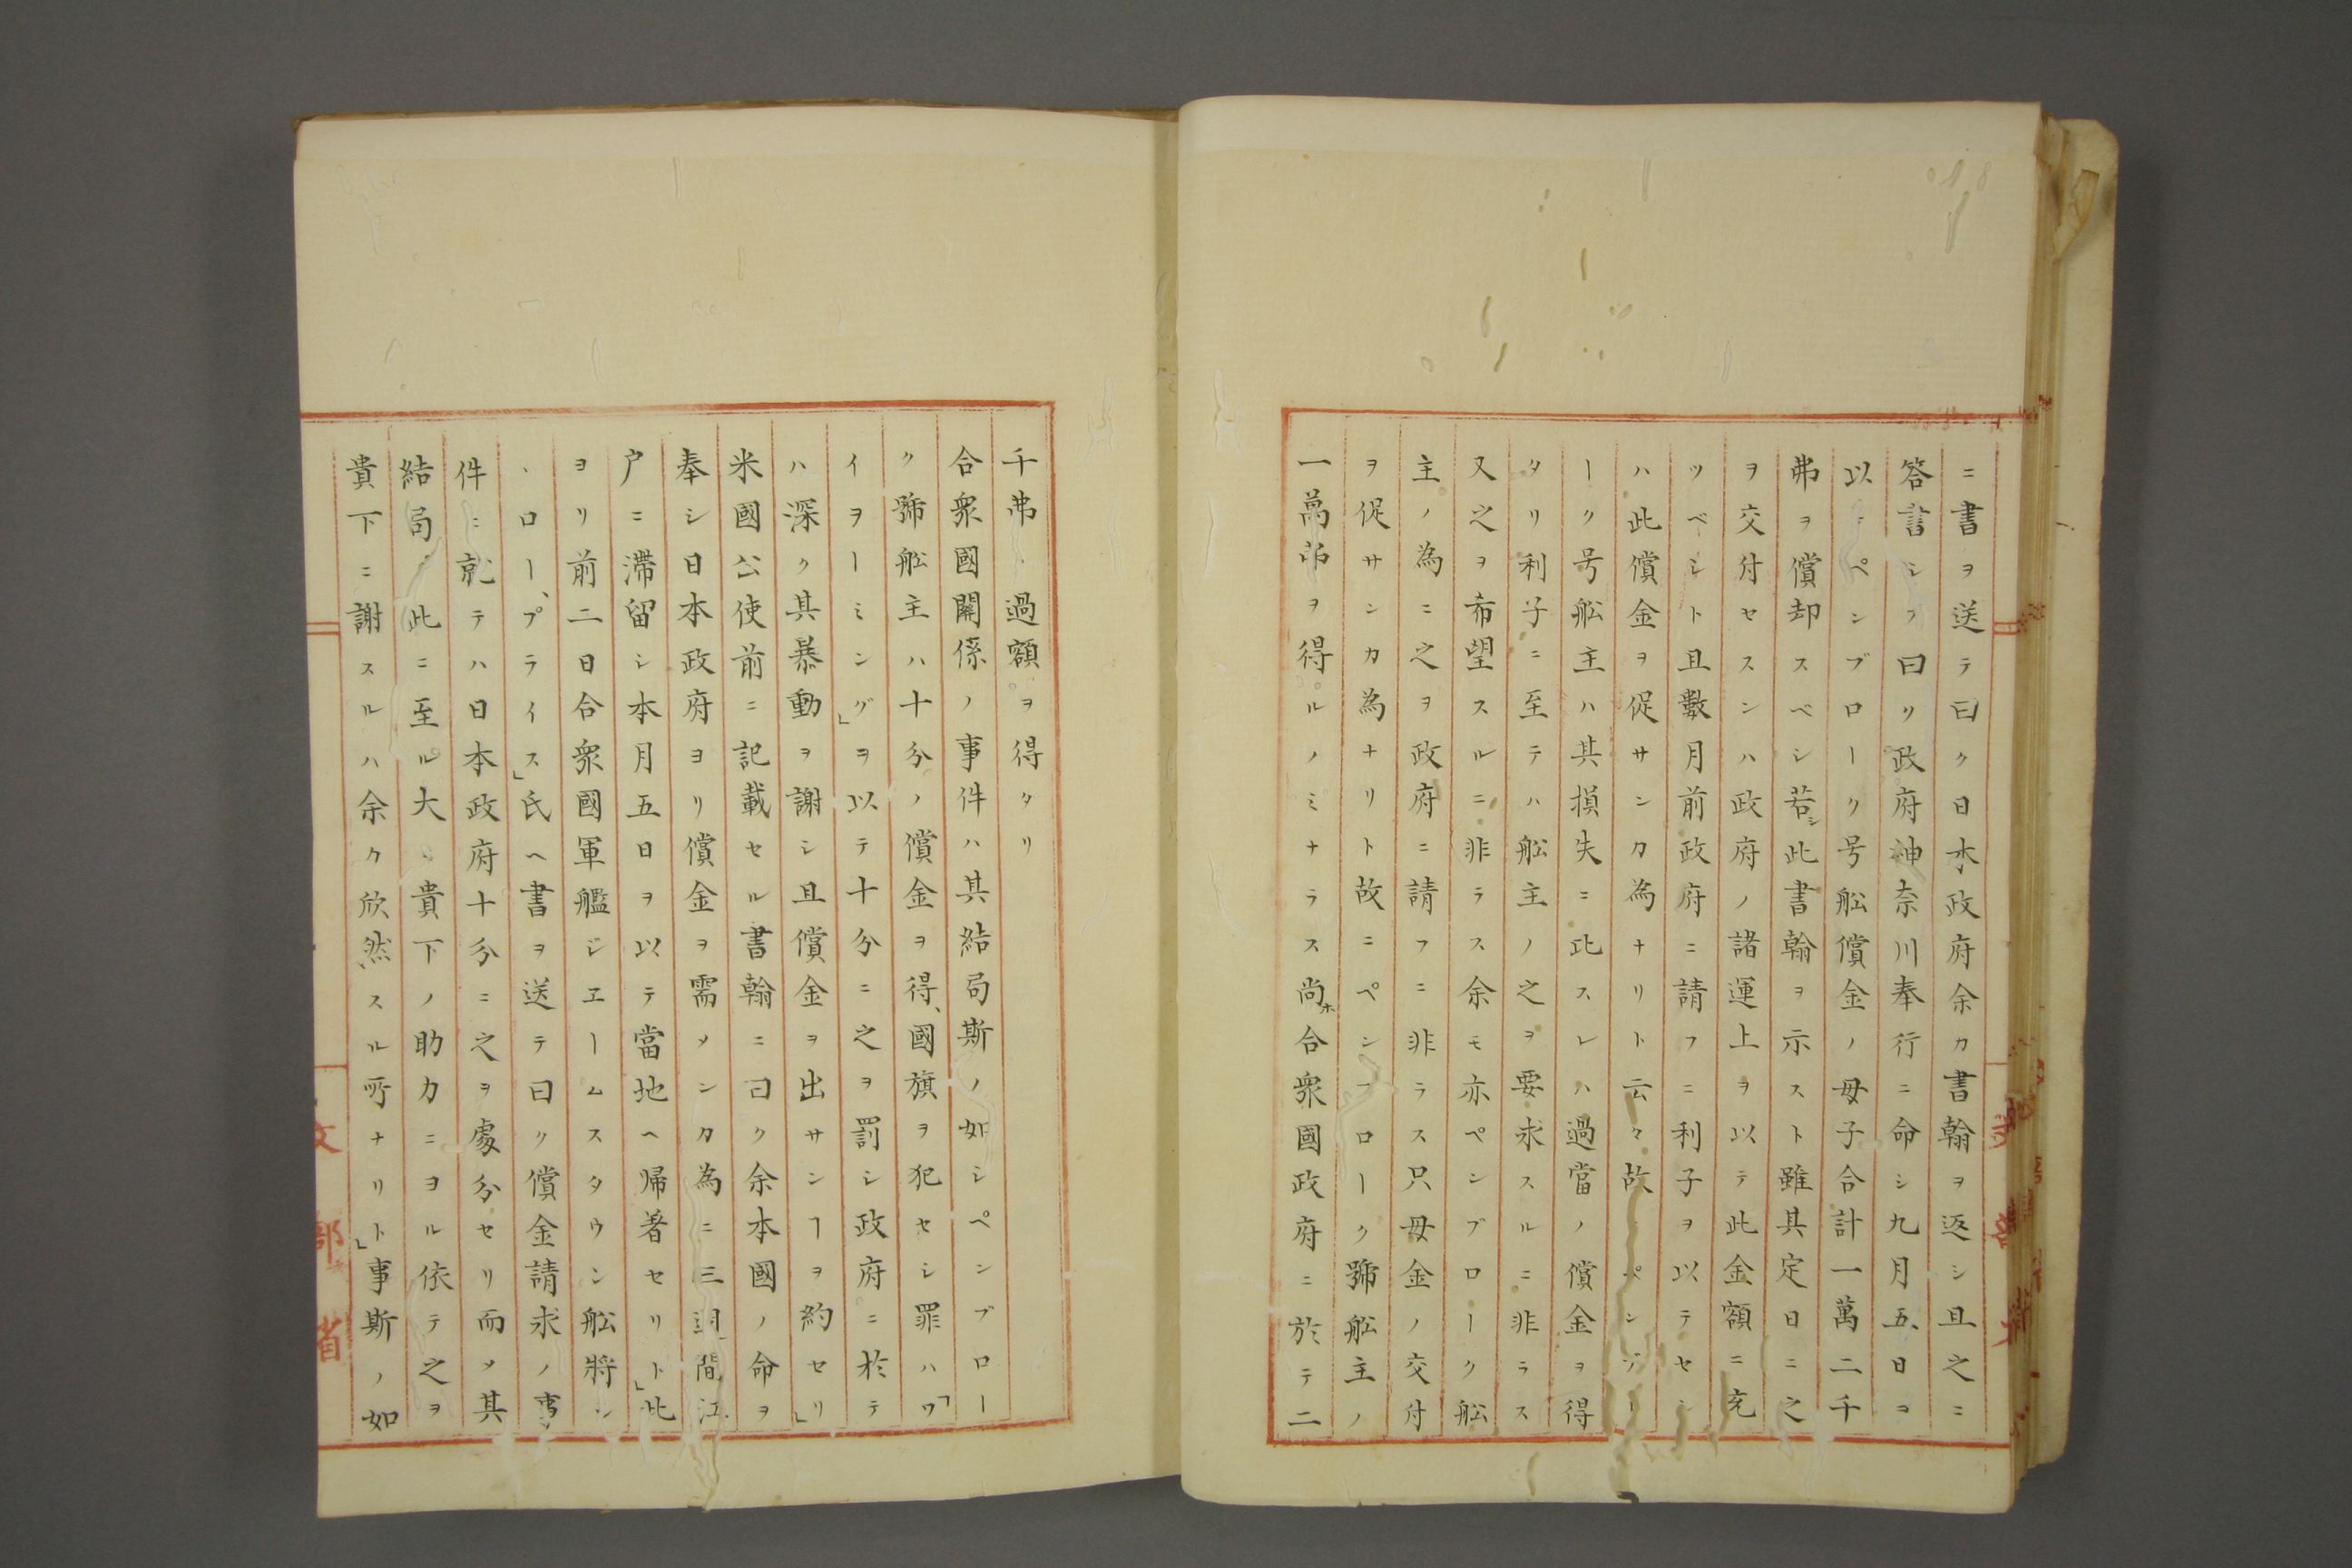 ニ書ヲ送テ曰ク日本政府余カ書翰ヲ返シ且之ニ
答書シテ曰リ政府神奈川奉行ニ命シ九月五日ヨ
以ニペンブローク号舩償金ノ母子合計一萬二千
弗ヲ償却スベシ若シ此書翰ヲ示スト雖其定日ニ之
ヲ交付セスンハ政府ノ諸運上ヲ以テ此金額ニ充
ツベシト且數月前政府ニ請フニ利子ヲ以テセシ
ハ此償金ヲ促サンカ為ナリト云々故ニペンブロ
ーク号舩主ハ其損失ニ比スレハ過當ノ償金ヲ得
タリ利子ニ至テハ舩主ノ之ヲ要求スルニ非ラス
又之ヲ希望スルニ非ラス余モ亦ペンブローク舩
主ノ為ニ之ヲ政府ニ請フニ非ラス只母金ノ交付
ヲ促サンカ為ナリト故ニペンブローク號舩主ノ
一萬弗ヲ得ルノミナラス尚ホ合衆國政府ニ於テ二
千弗ノ過額ヲ得タリ
合衆國關係ノ事件ハ其結局斯ノ如シペンブロー
ク號舩主ハ十分ノ償金ヲ得、國旗ヲ犯セシ罪ハ「ワ
イヲーミング」ヲ以テ十分ニ之ヲ罰シ政府ニ於テ
ハ深ク其暴動ヲ謝シ且償金ヲ出サンヿヲ約セリ」
米國公使前ニ記載セル書翰ニ曰ク余本國ノ命ヲ
奉シ日本政府ヨリ償金ヲ需メンカ為ニ三週間江
戸ニ滞留シ本月五日ヲ以テ當地ヘ帰著セリト」此
ヨリ前二日合衆國軍艦ジエームスタウン舩將
ロー、プライス」氏ヘ書ヲ送テ曰ク償金請求ノ事
件ニ就テハ日本政府十分ニ之ヲ處分セリ而メ其
結局此ニ至ル大ニ貴下ノ助力ニヨル依テ之ヲ
貴下ニ謝スルハ余カ欣然スル所ナリト」事斯ノ如
文部省